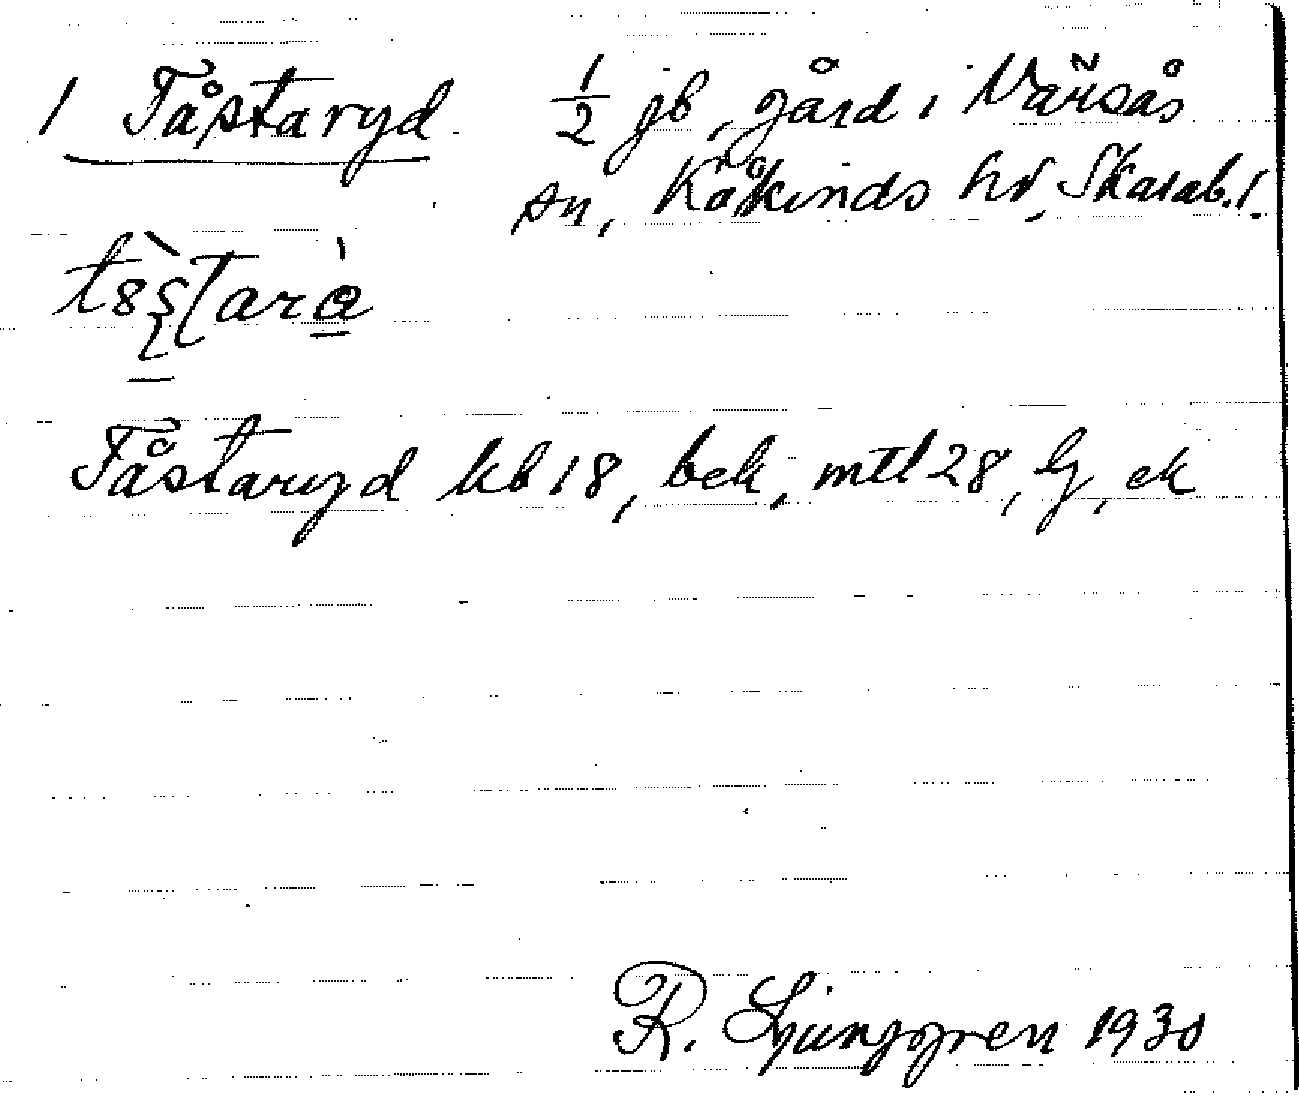 1 Tåstaryd ½ jb, gård i Värsås
sn, Kåkinds hd, Skarab. l.
Tåstaryd kb 18, bek, mtl 28, Lj, ek
R. Ljunggren 1930